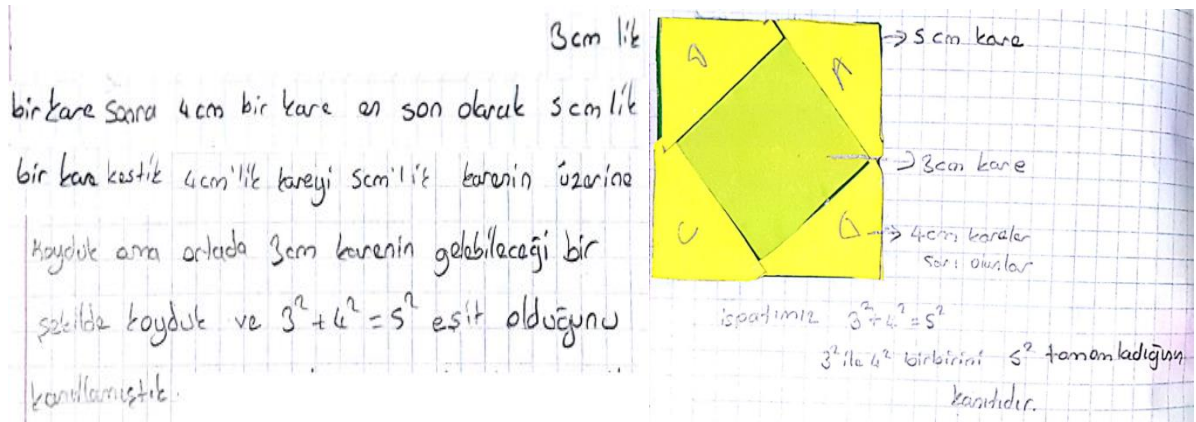 3cm lik
bir kare sonra 4cm bir kare en son olarak 5cm lik
bir kare kestik 4cm'lik kareyi 5cm'lik karenin üzerine
koyduk ama ortada 3cm karenin gelebileceği bir
şekilde koyduk ve 3²+4²=5² eşit olduğunu
kanıtlamıştık.
D
A
C
→ 5cm kare
→ 3cm kare
→ 4cm kareler
sarı olanlar
ispatımız 3²+4²=5²
3² ile 4² birbirini 5² tamamladığının
kanıtıdır.